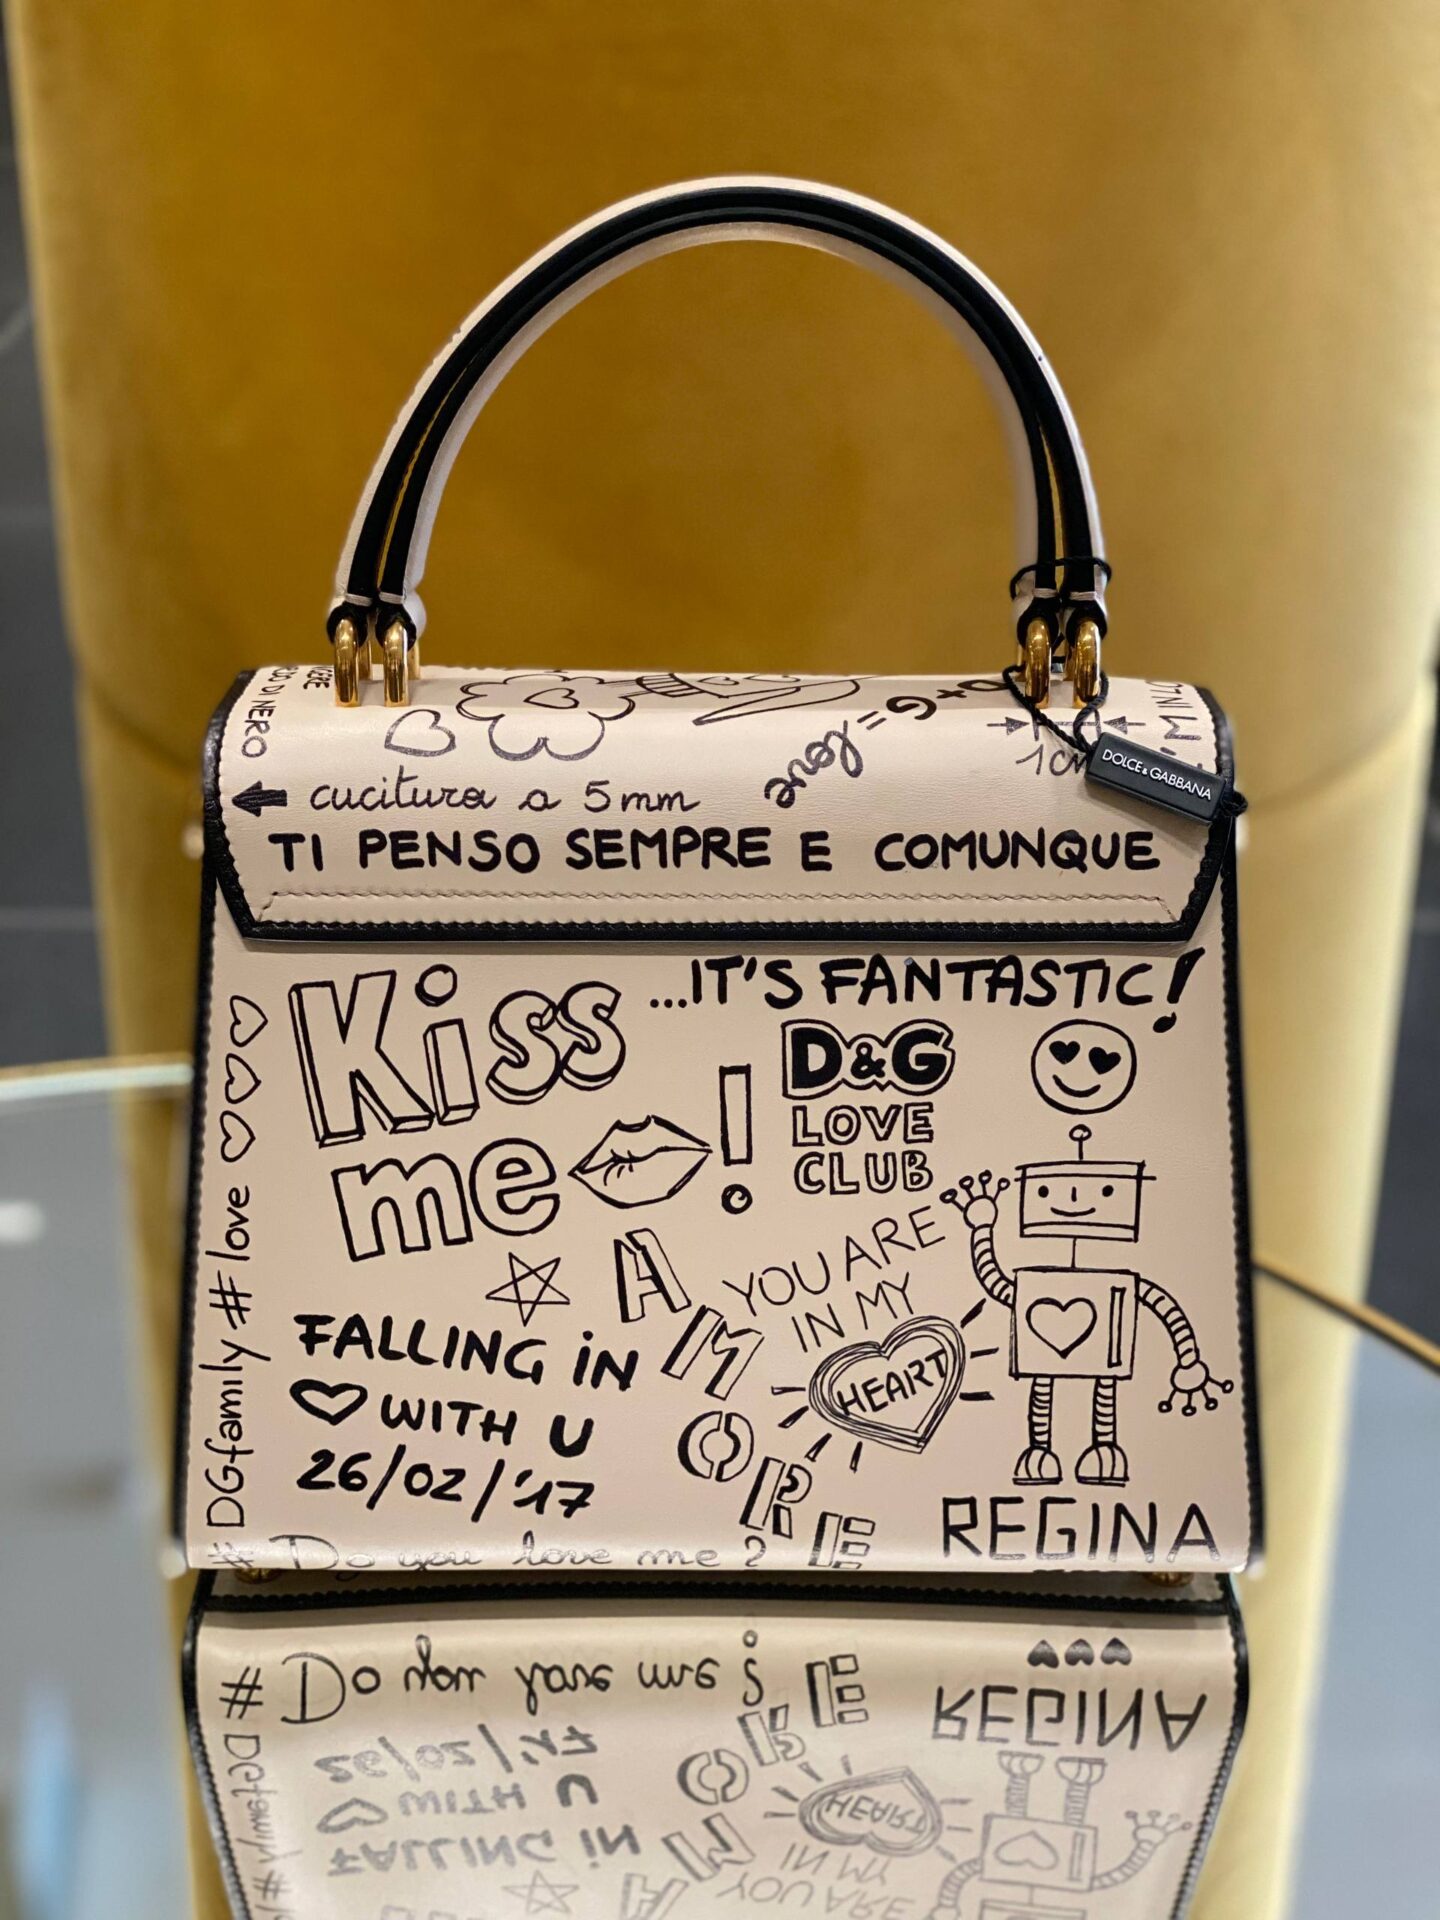 DI NERO
D+G = love
1cm
DOLCE & GABBANA
cucitura a 5mm
TI PENSO SEMPRE E COMUNQUE
...IT'S FANTASTIC!
Kiss
me !
D&G
LOVE
CLUB
AMORE
YOU ARE
IN MY
HEART
FALLING iN
WITH U
26/02/'17
REGINA
#DGfamily #love
# Do you love me?